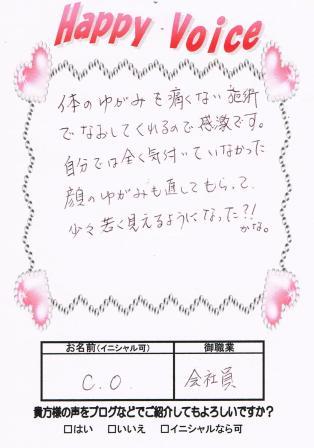 Happy Voice
体のゆがみを痛くない施術
でなおしてくれるので感激です。
自分では全く気付いていなかった
顔のゆがみも直してもらって、
少々若く見えるようになった?!
かな。
お名前(イニシャル可) 御職業
C.O. 会社員
貴方様の声をブログなどでご紹介してもよろしいですか?
□はい □いいえ □イニシャルなら可